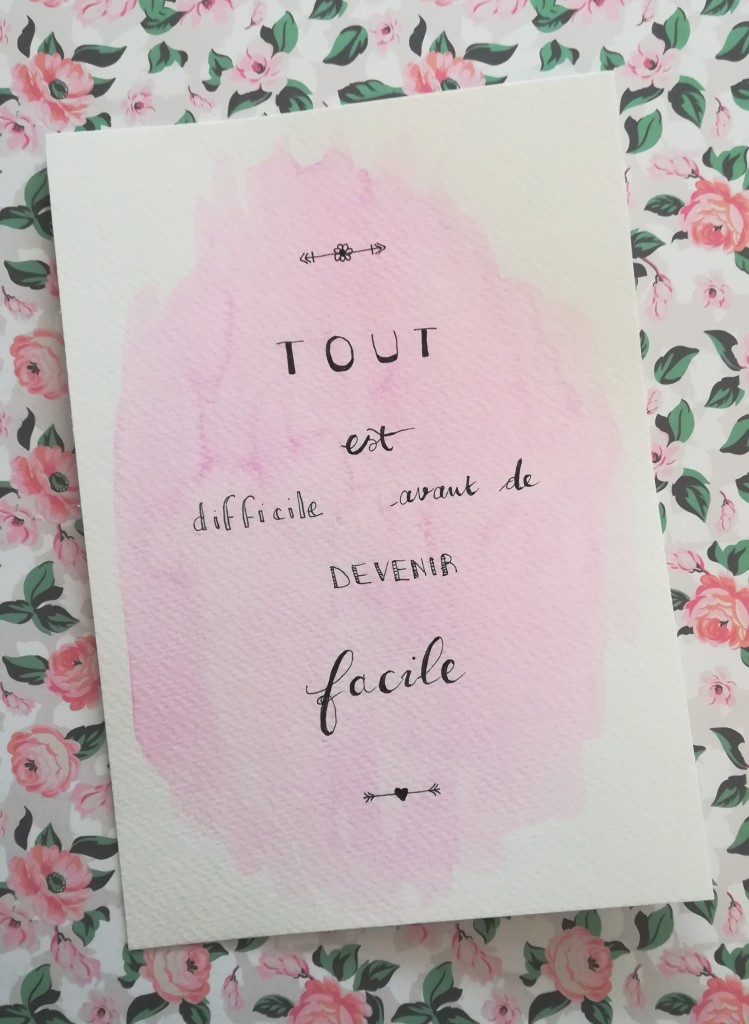 TOUT
est
difficile avant de
DEVENIR
facile